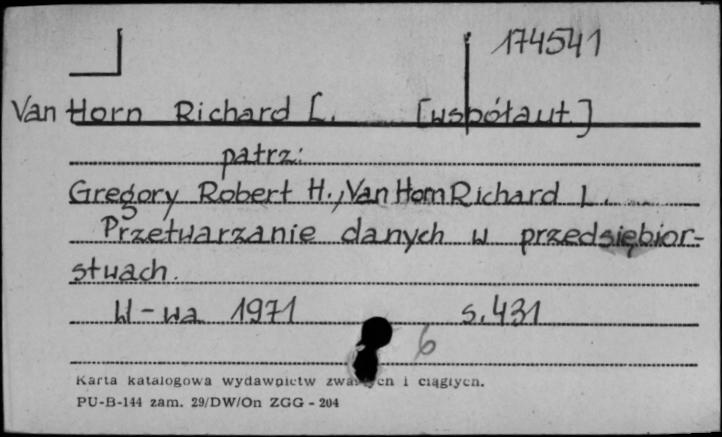 174541
Van Horn Richard L. [współaut.]
patrz:
Gregory Robert H., Van Horn Richard L.
Przetwarzanie danych w przedsiębior-
stwach.
W-wa 1971 s. 431
6
Karta katalogowa wydawnictw zwartych i ciągłych.
PU-B-144 zam. 29/DW/On ZGG - 204